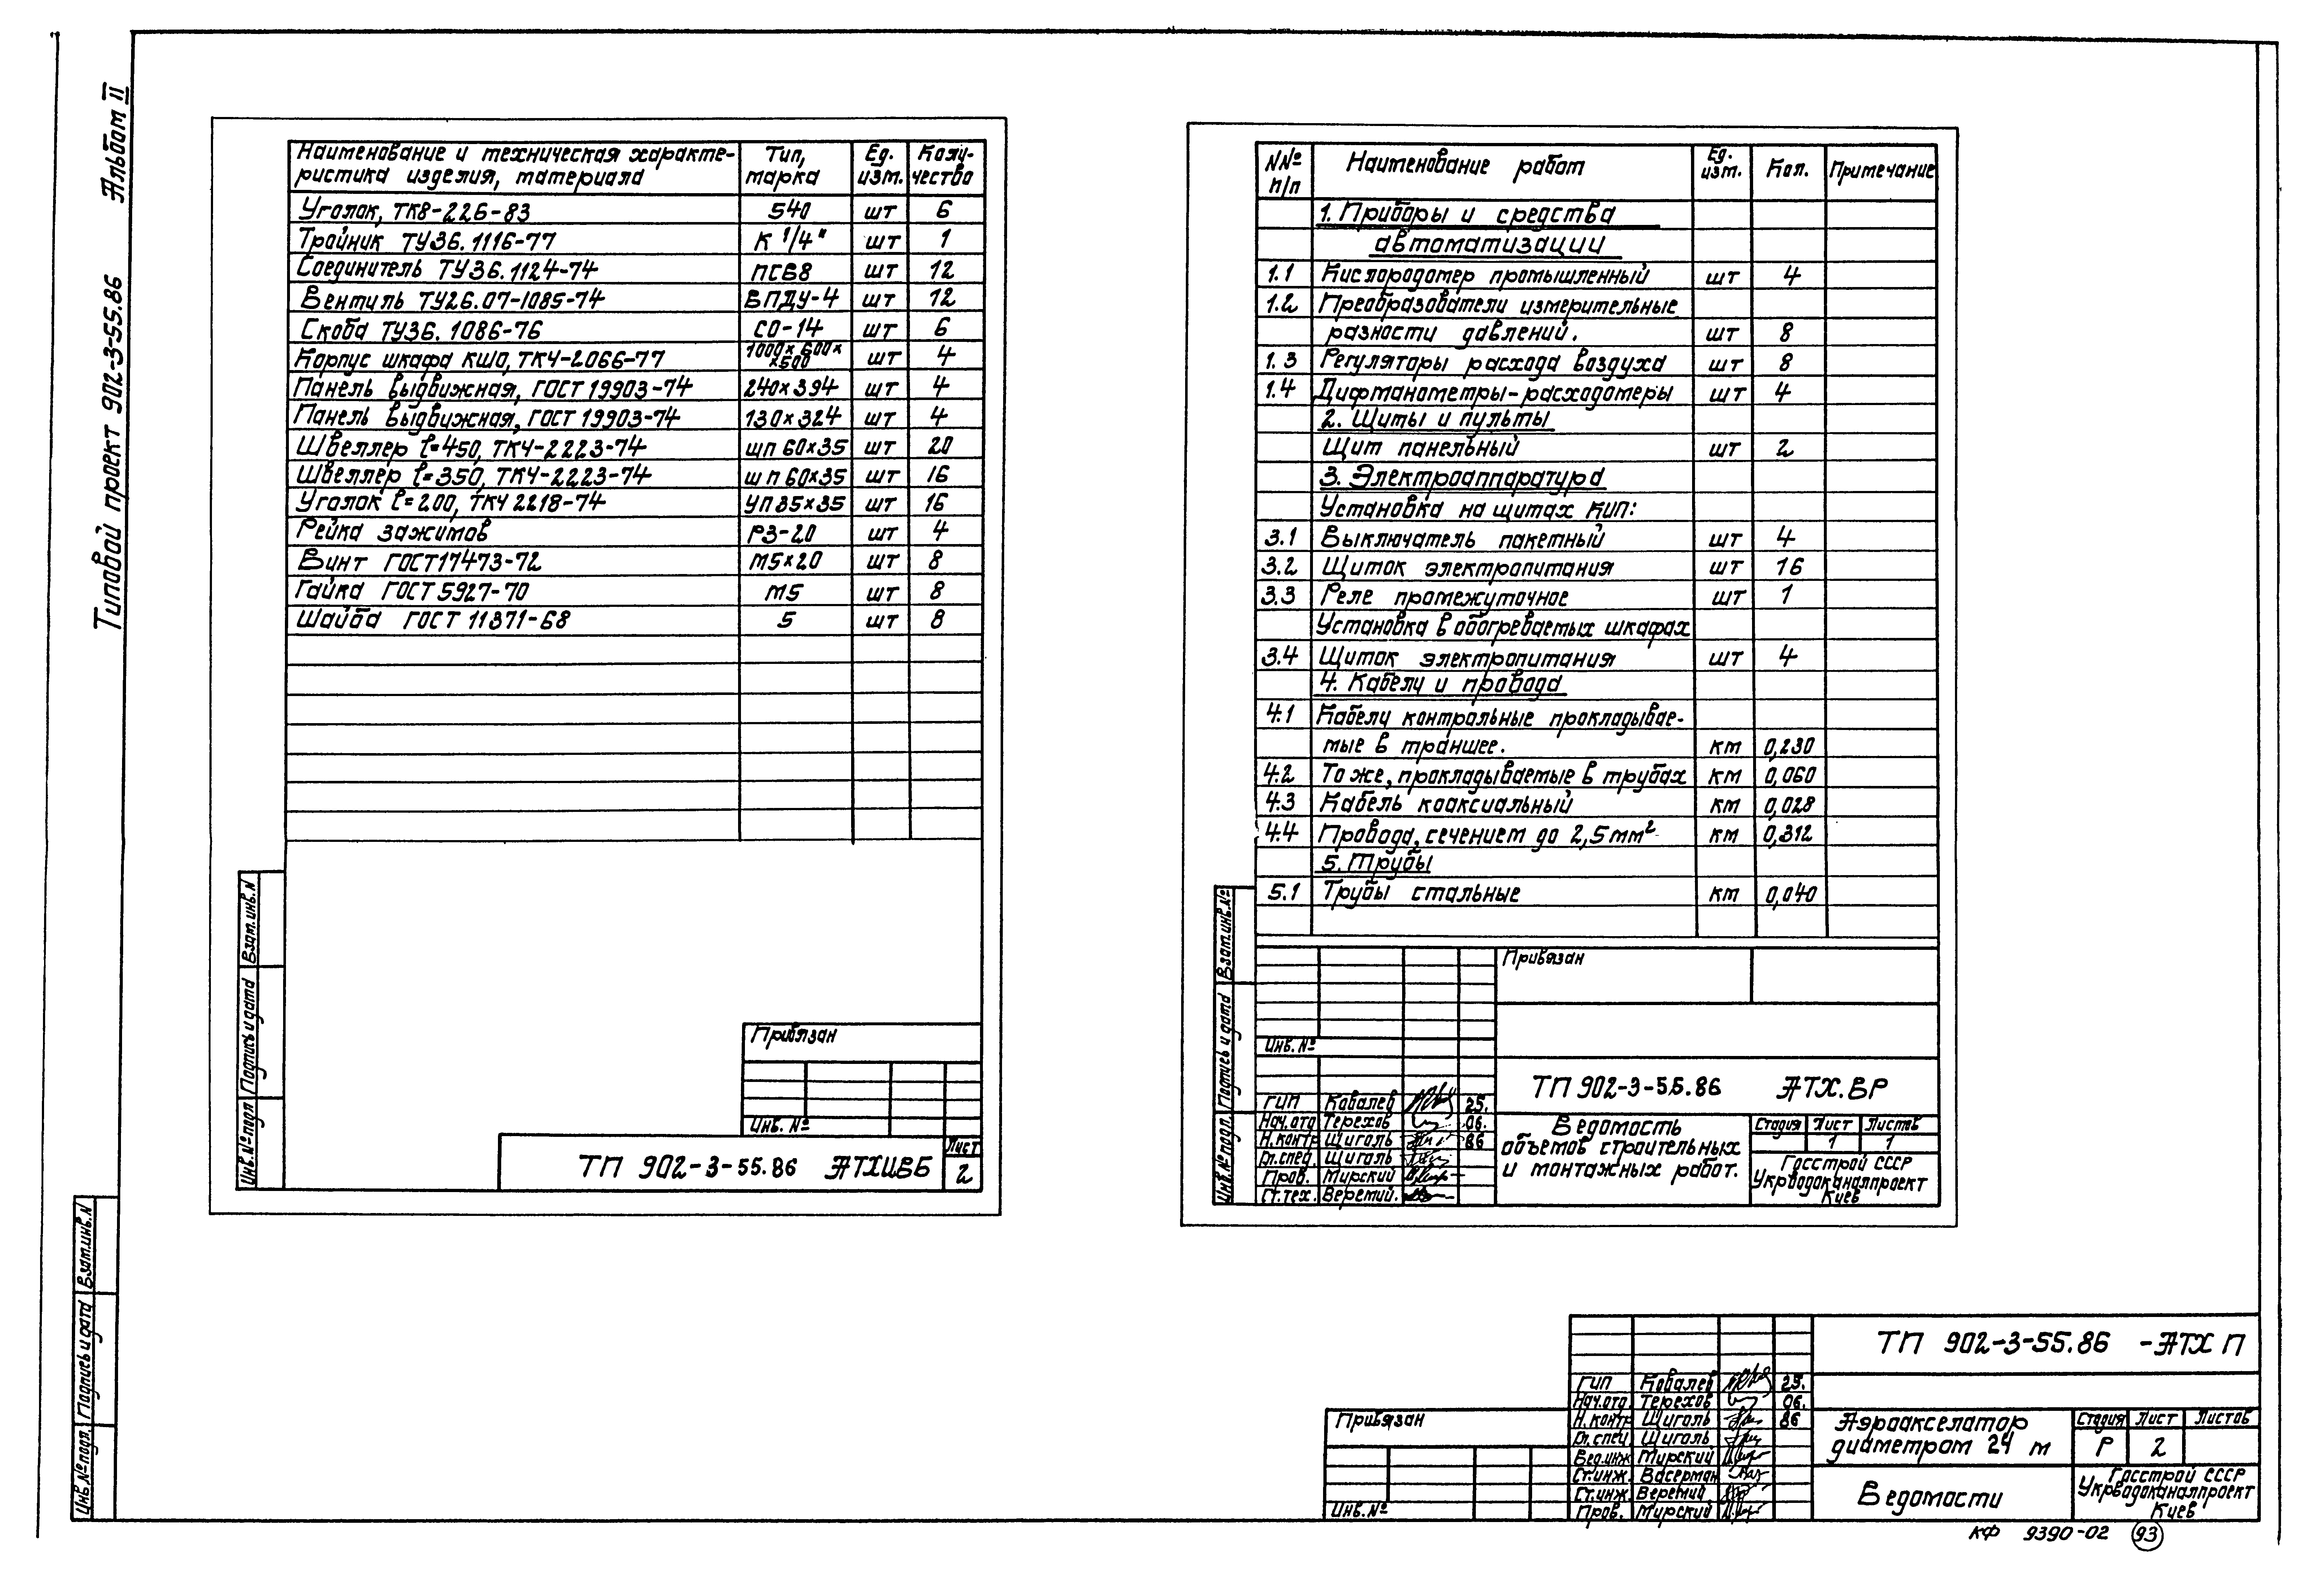 Типовой проект 902-3-55.86 Альбом II
Наименование и техническая характе-
ристика изделия, материала
Тип,
марка
Ед.
изм.
Коли-
чество
Уголок, ТК8-226-83 540 шт 6
Тройник ТУ36.1116-77 К 1/4" шт 1
Соединитель ТУ36.1124-74 ПСВ8 шт 12
Вентиль ТУ26.07-1085-74 ВПДУ-4 шт 12
Скоба ТУ36.1086-76 СО-14 шт 6
Корпус шкафа КШО, ТК4-2066-77 1000×600××500 шт 4
Панель выдвижная, ГОСТ 19903-74 240×394 шт 4
Панель выдвижная, ГОСТ 19903-74 130×324 шт 4
Швеллер l=450, ТКЧ-2223-74 шп 60×35 шт 20
Швеллер l=350, ТКЧ-2223-74 шп 60×35 шт 16
Уголок l=200, ТКЧ 2218-74 УП35×35 шт 16
Рейка зажимов РЗ-20 шт 4
Винт ГОСТ17473-72 М5×20 шт 8
Гайка ГОСТ 5927-70 М5 шт 8
Шайба ГОСТ 11371-68 5 шт 8
Привязан
Инв. №
ТП 902-3-55.86 АТХИВБ
Лист
2
Инв.№подл Подпись и дата Взам.инв.N
NN№
п/п
Наименование работ
Ед.
изм.
Кол.
Примечание
1. Приборы и средства
автоматизации
1.1 Кислородомер промышленный шт 4
1.2 Преобразователи измерительные
разности давлений. шт 8
1.3 Регуляторы расхода воздуха шт 8
1.4 Дифманометры-расходомеры шт 4
2. Щиты и пульты
Щит панельный шт 2
3. Электроаппаратура
Установка на щитах КИП:
3.1 Выключатель пакетный шт 4
3.2 Щиток электропитания шт 16
3.3 Реле промежуточное шт 1
Установка в обогреваемых шкафах
3.4 Щиток электропитания шт 4
4. Кабели и провода
4.1 Кабели контрольные прокладывае-
мые в траншее. км 0,230
4.2 То же, прокладываемые в трубах км 0,060
4.3 Кабель коаксиальный км 0,028
4.4 Провода, сечением до 2,5мм² км 0,312
5. Трубы
5.1 Трубы стальные км 0,040
Привязан
Инв. №
ТП 902-3-55.86 АТХ.ВР
ГИП Ковалев 25.
Нач.отд Терехов 06.
Н.контр Щиголь 86
Гл.спец. Щиголь
Пров. Мирский
Ст.тех. Веремий.
Ведомость
объемов строительных
и монтажных работ.
Стадия Лист Листов
1 1
Госстрой СССР
Укрводоканалпроект
Киев
Инв.№подл. Подпись и дата Взам.инв.№
ТП 902-3-55.86 -АТХ П
ГИП Ковалев 25.
Нач.отд. Терехов 06.
Н.контр Щиголь 86
Гл.спец Щиголь
Вед.инж Мирский
Ст.инж. Васерман
Ст.инж. Веремий
Пров. Мирский
Привязан
Инв.№
Аэроакселатор
диаметром 24 м
Стадия Лист Листов
Р 2
Ведомости
Госстрой СССР
Укрводоканалпроект
Киев
КФ 9390-02 93
Инв.№подл. Подпись и дата Взам.инв.N